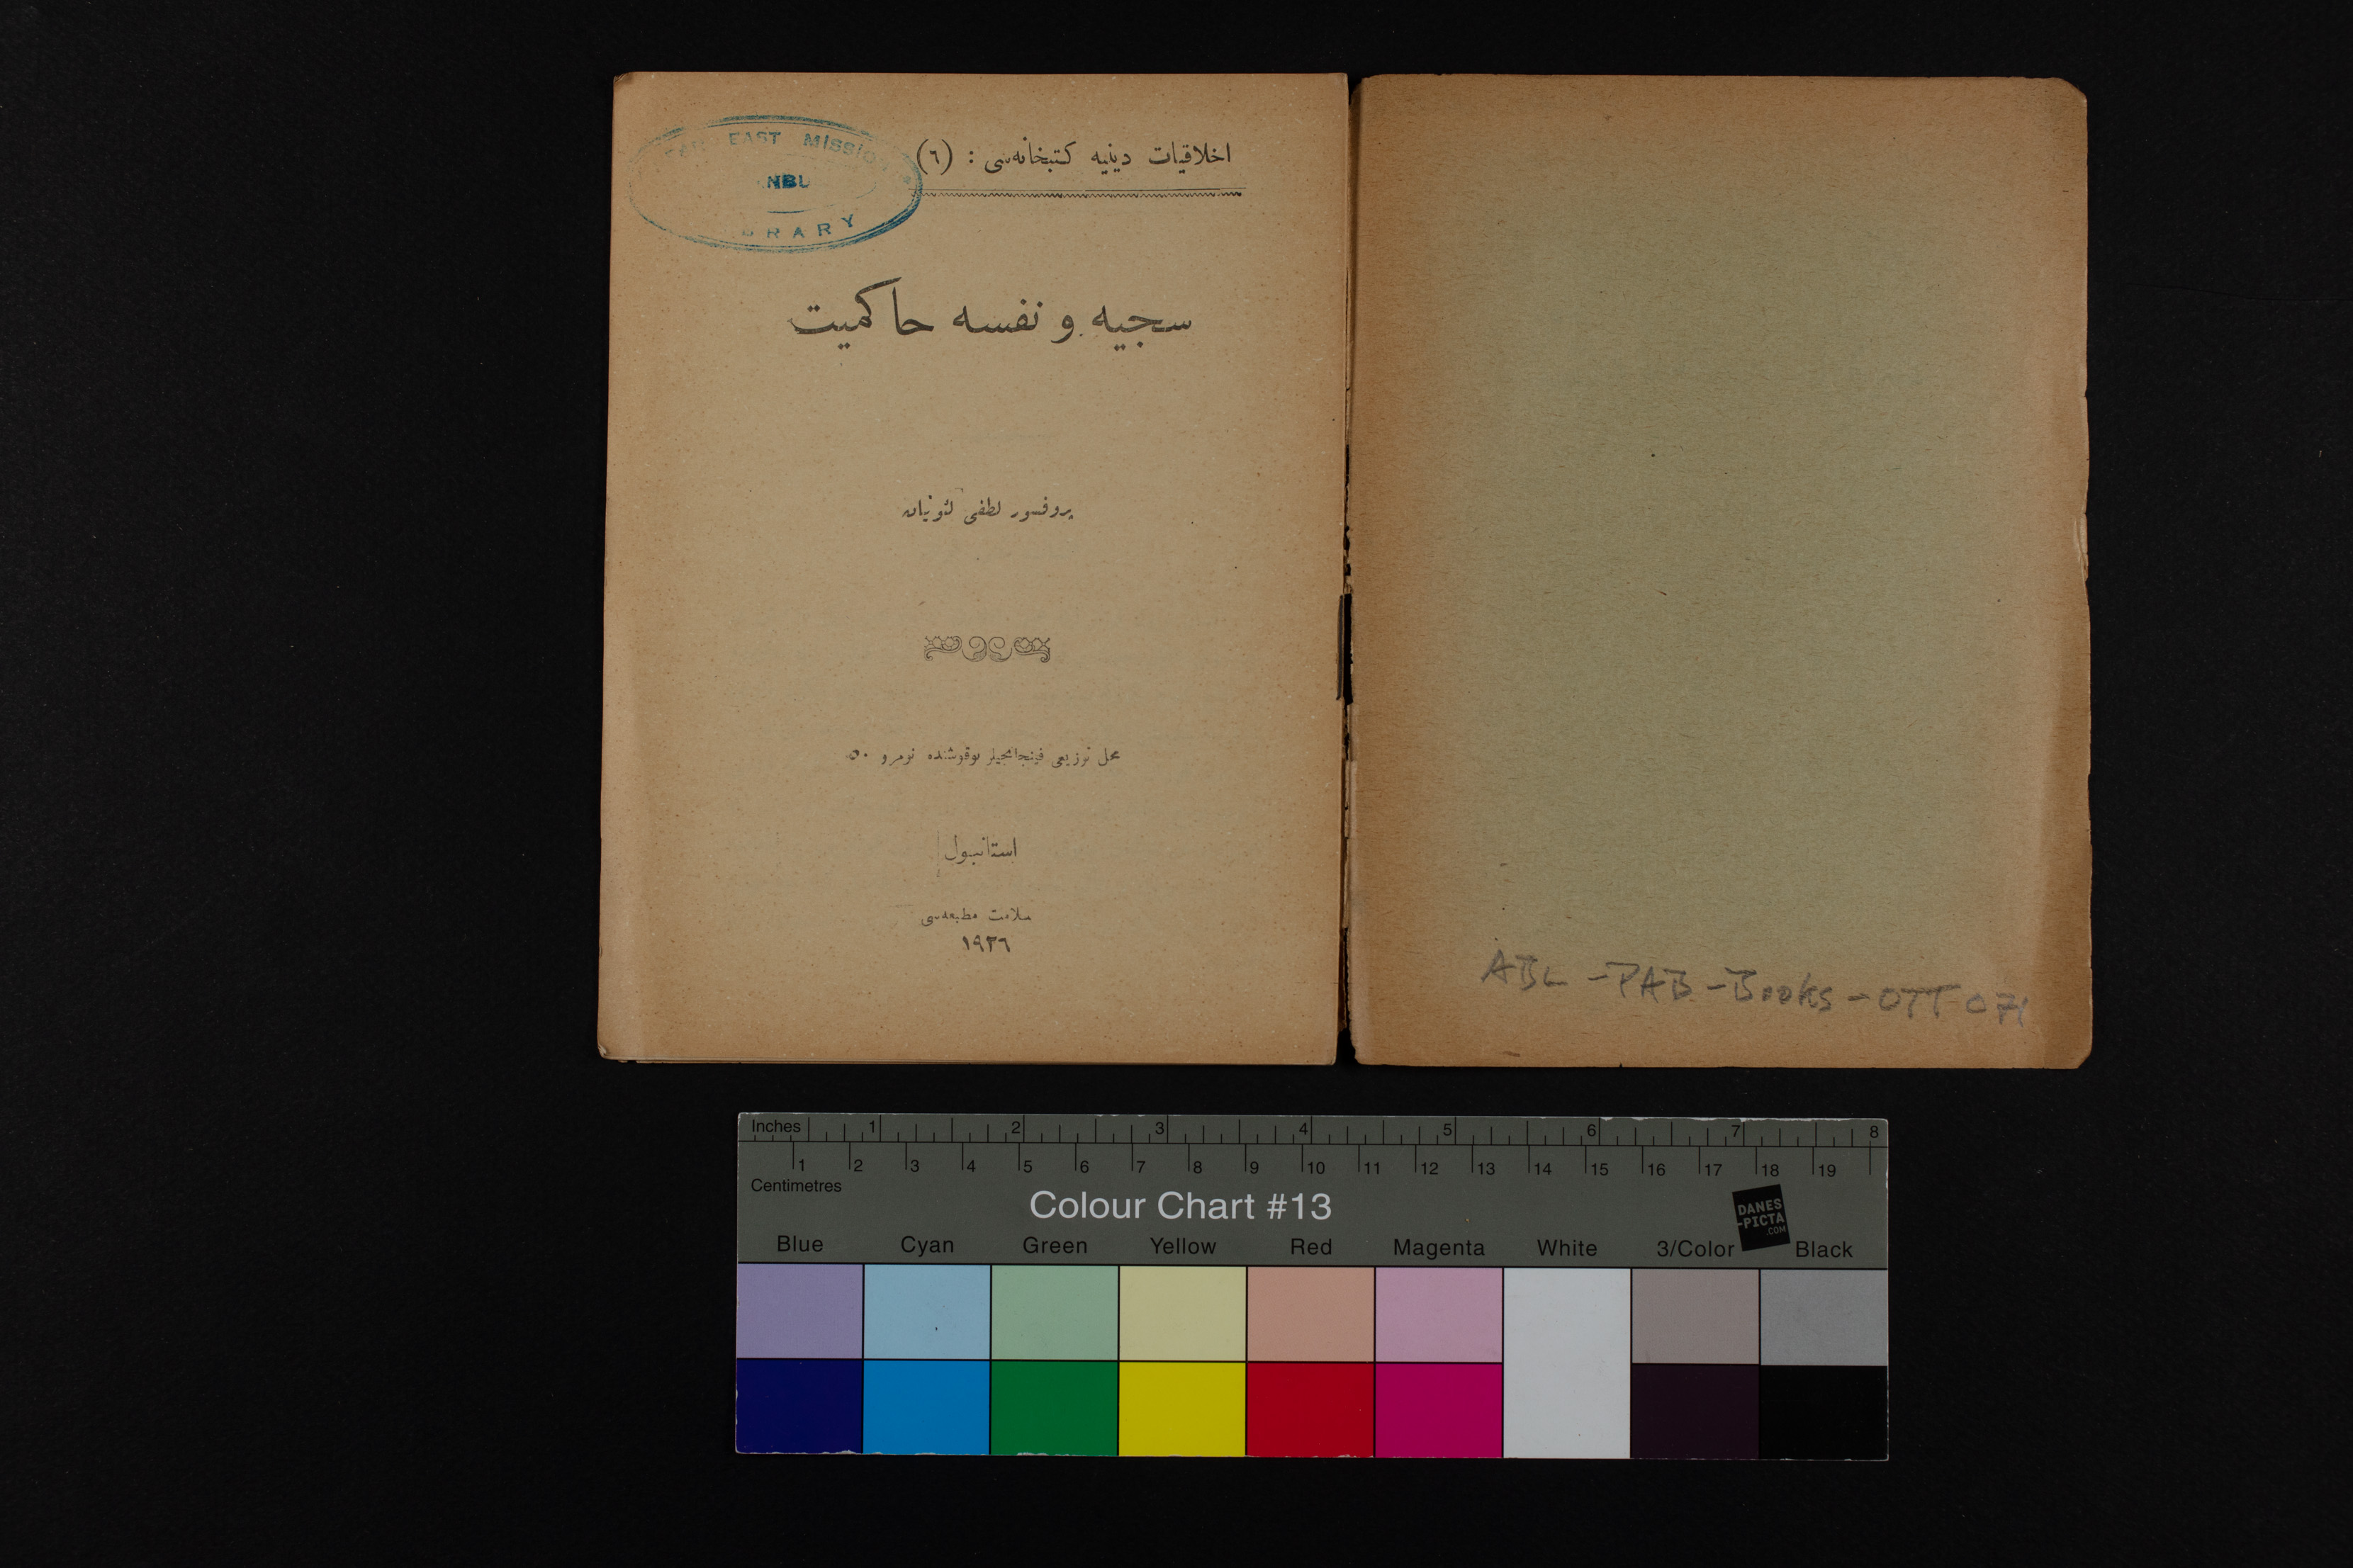 اخلاقیات دینیه کتبخانه‌سی : (٦)
EAST Mission
NBU
RARY
سجیه و نفسه حاکمیت
پروفسور لطفی لئونیان
محل توزیعی فینجانجیلر یوقوشنده نومرو ٥٠
استانبول
سلامت مطبعه‌سی
١٩٢٦
ABL - PAB - Books - OTT 071
Inches 1 2 3 4 5 6 7 8
1 2 3 4 5 6 7 8 9 10 11 12 13 14 15 16 17 18 19
Centimetres
Colour Chart #13
DANES
-PICTA
.COM
Blue Cyan Green Yellow Red Magenta White 3/Color Black